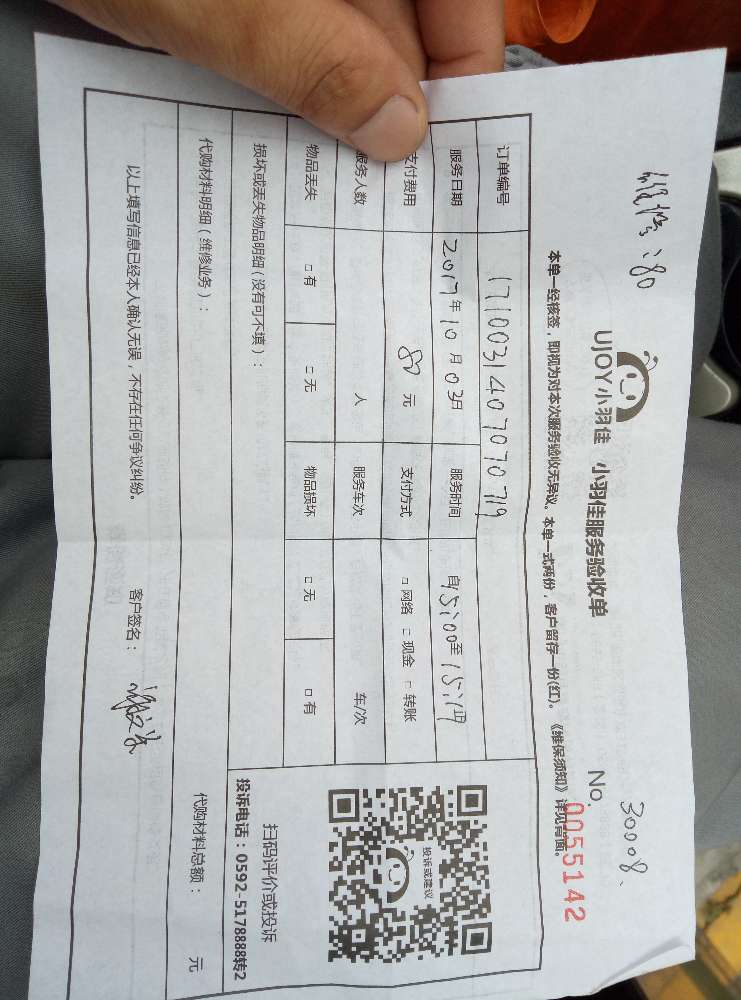 维修:80
30008.
UJOY小羽佳 小羽佳服务验收单
No. 0055142
本单一经核签，即视为对本次服务验收无异议。本单一式两份，客户留存一份(红)。《维保须知》详见背面。
订单编号 1710031407070719
服务日期 2017年10月03日 服务时间 自15:00至15:17
支付费用 80元 支付方式 □ 网络 □ 现金 □ 转账
服务人数 人 服务车次 车/次
物品丢失 □ 有 □ 无 物品损坏 □ 无 □ 有
投诉或建议
扫码评价或投诉
投诉电话：0592-5178888转2
损坏或丢失物品明细(没有可不填)：
代购材料明细(维修业务)： 代购材料总额： 元
以上填写信息已经本人确认无误，不存在任何争议纠纷。 客户签名：